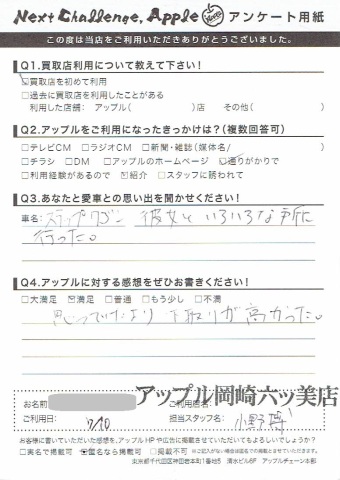 Next Challenge, Apple アンケート用紙
この度は当店をご利用いただきありがとうございました。
Q1.買取店利用について教えて下さい!
☑買取店を初めて利用
□過去に買取店を利用したことがある
利用した店舗： アップル( )店 その他( )
Q2.アップルをご利用になったきっかけは?(複数回答可)
□テレビCM □ラジオCM □新聞・雑誌(媒体名/ )
□チラシ □DM □アップルのホームページ ☑通りがかりで
□利用経験があるので ☑紹介 □スタッフに誘われて
Q3.あなたと愛車との思い出を聞かせください!
車名：ステップワゴン 彼女といろいろな所に
行った。
Q4.アップルに対する感想をぜひお書きください!
□大満足 ☑満足 □普通 □もう少し □不満
思っていたより下取りが高かった。
アップル岡崎六ッ美店
お名前 ご利用店名：
ご利用日： 7/10 担当スタッフ名： 小野
お客様に書いていただいた感想を、アップルHPや広告に掲載させていただいてもよろしいでしょうか?
□実名で掲載可 ☑匿名なら掲載可 □掲載不可 ※ご記入がない場合は匿名での掲載とさせていただきます。
東京都千代田区神田岩本町1番地5 清水ビル6F アップルチェーン本部